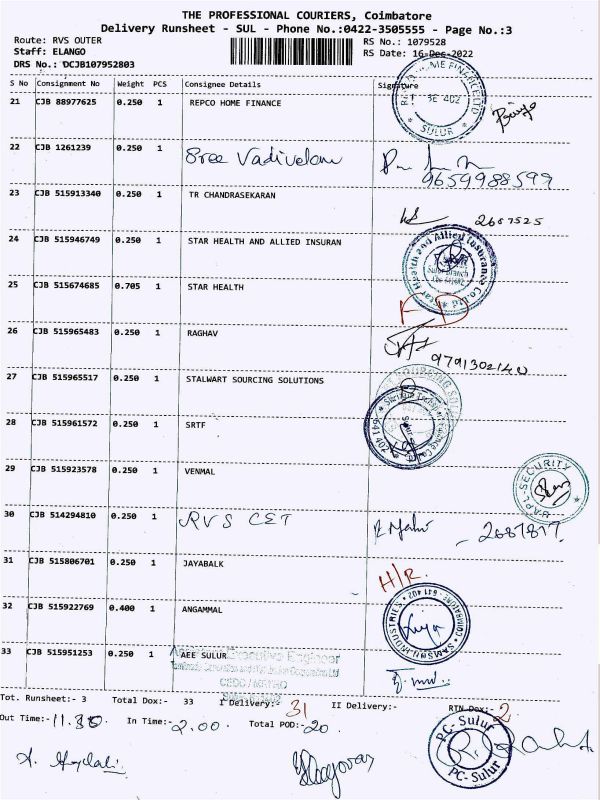 THE PROFESSIONAL COURIERS, Coimbatore
Delivery Runsheet - SUL - Phone No.:0422-3505555 - Page No.:3
Route: RVS OUTER RS No.: 1079528
Staff: ELANGO RS Date: 16-Dec-2022
DRS No.: DCJB107952803
S No Consignment No Weight PCS Consignee Details Signature
21 CJB 88977625 0.250 1 REPCO HOME FINANCE
SULUR
22 CJB 1261239 0.250 1 Sree Vadivelan
9654988599
23 CJB 515913340 0.250 1 TR CHANDRASEKARAN
2687525
24 CJB 515946749 0.250 1 STAR HEALTH AND ALLIED INSURAN
Star Health and Allied Insurance Co.Ltd
Sulur Branch
25 CJB 515674685 0.705 1 STAR HEALTH
26 CJB 515965483 0.250 1 RAGHAV
9791302140
27 CJB 515965517 0.250 1 STALWART SOURCING SOLUTIONS
28 CJB 515961572 0.250 1 SRTF
Sulur
641 402
29 CJB 515923578 0.250 1 VENMAL
SECURITY
30 CJB 514294810 0.250 1 RVS CET
- 2687817.
31 CJB 515806701 0.250 1 JAYABALK
H/R.
32 CJB 515922769 0.400 1 ANGAMMAL
INDUSTRIES COIMBATORE - 641 402
33 CJB 515951253 0.250 1 AEE SULUR
Executive Engineer
Tot. Runsheet:- 3 Total Dox:- 33 I Delivery:- 31 II Delivery:- RTN Dox:- 2
Out Time:- 11.30 In Time:- 2.00 Total POD:- 20
PC-Sulur
PC-Sulur